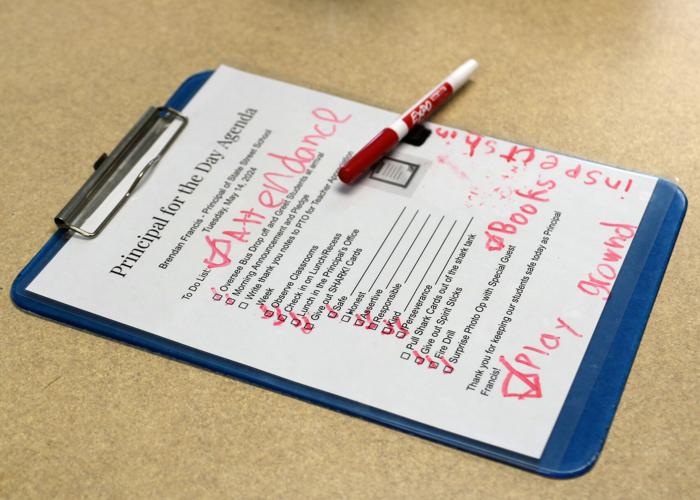 Principal for the Day Agenda
Brendan Francis - Principal of State Street School
Tuesday, May 14, 2024
To Do List:
Attendance
Oversee Bus Drop off and Greet Students at arrival
Morning Announcement and Pledge
Write thank you notes to PTO for Teacher Appreciation
Week
Observe Classrooms
Check in on Lunch/Recess
Lunch in the Principal's Office
Give out SHARK! Cards
Safe
Honest
Assertive
Responsible
Kind
Perseverance
Pull Shark Cards out of the shark tank
Give out Spirit Sticks
Fire Drill
Surprise Photo Op with Special Guest
Books
Thank you for keeping our students safe today as Principal
Francis!
Play ground
inspect
EXPO